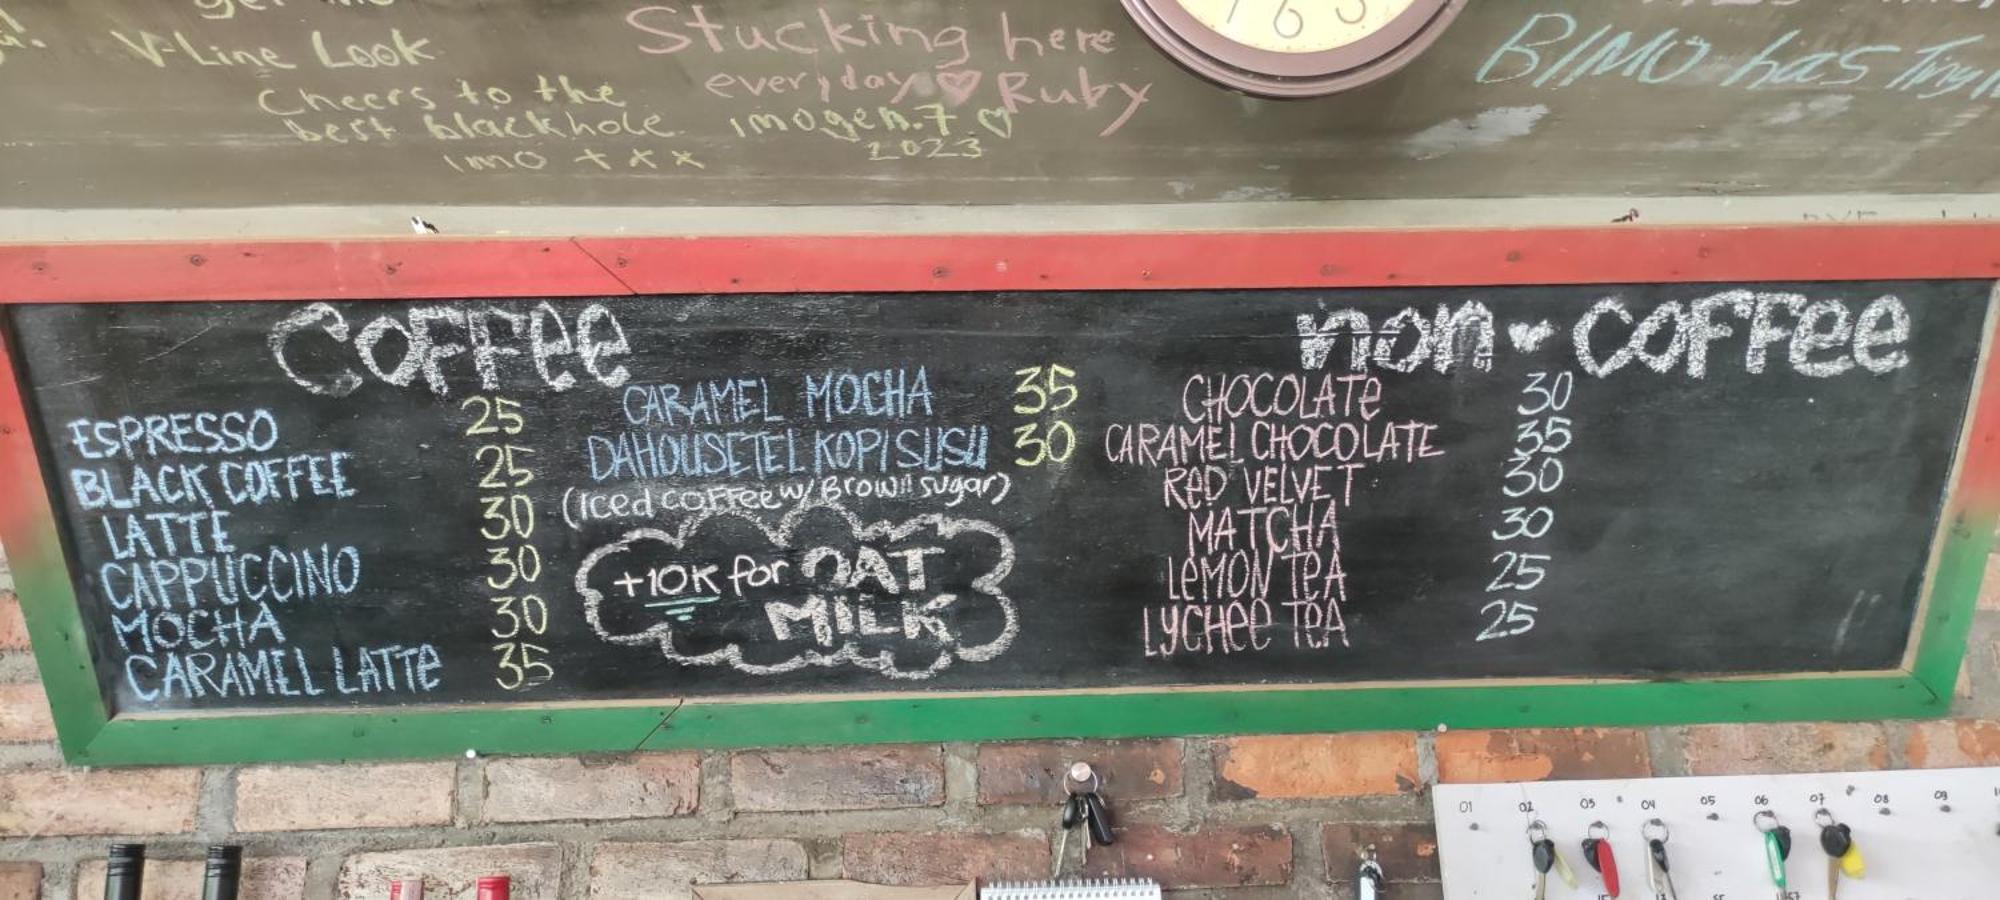 get me
V-Line Look
Cheers to the
best blackhole
imo + x x
Stucking here
everyday ♡ Ruby
imogen.7 ♡
2023
7 6 5
BIMO has Tiny
Coffee
ESPRESSO 25
BLACK COFFEE 25
LATTE 30
CAPPUCCINO 30
MOCHA 30
CARAMEL LATTE 35
CARAMEL MOCHA 35
DAHOUSETEL KOPI SUSU 30
(Iced coffee w/ Brown sugar)
+10K for OAT
MILK
non coffee
CHOCOLATE 30
CARAMEL CHOCOLATE 35
RED VELVET 30
MATCHA 30
LEMON TEA 25
LYCHEE TEA 25
01 02 03 04 05 06 07 08 09